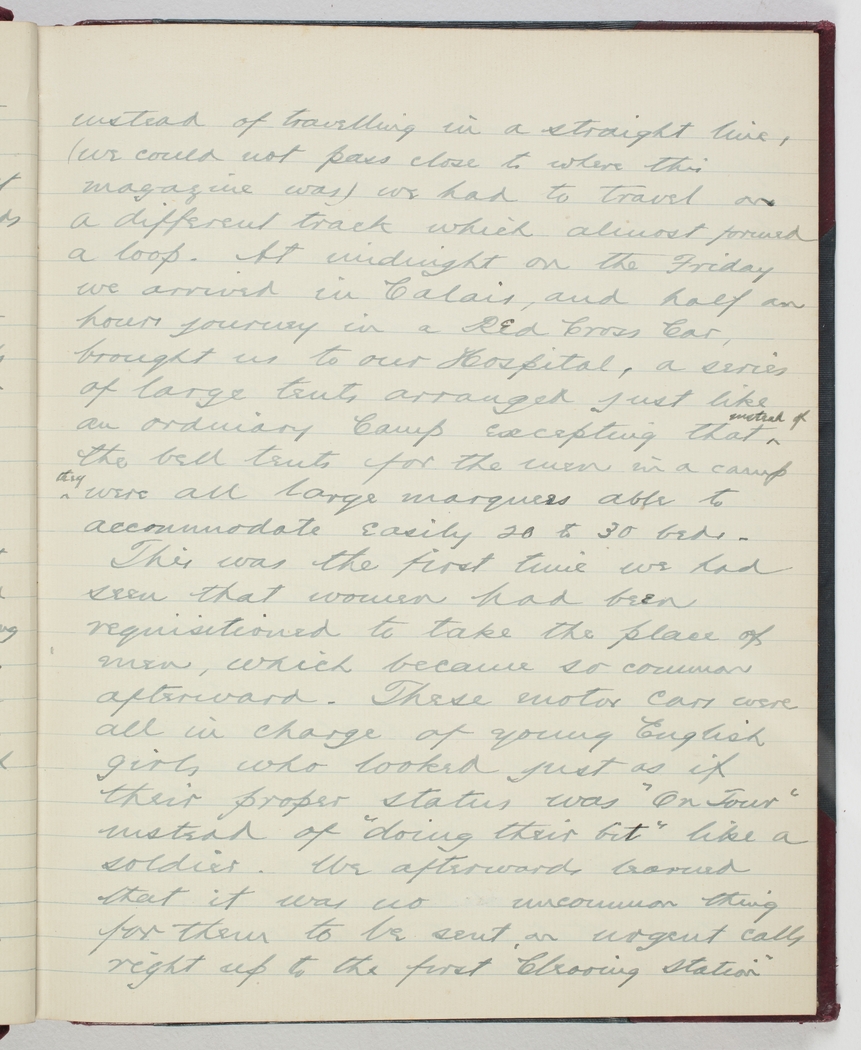 instead of travelling in a straight line,
(we could not pass close to where this
magazine was) we had to travel on
a different track which almost formed
a loop. At midnight on the Friday
we arrived in Calais, and half an
hours journey in a Red Cross Car,
brought us to our Hospital, a series
of large tents arranged just like
an ordinary Camp excepting that instead of
the bell tents for the men in a camp
they were all large marquees able to
accommodate easily 20 to 30 beds.
This was the first time we had
seen that women had been
requisitioned to take the place of
men, which became so common
afterward. These motor cars were
all in charge of young English
girls who looked just as if
their proper status was "On Tour"
instead of "doing their bit" like a
soldier. We afterwards learned
that it was no uncommon thing
for them to be sent on urgent calls
right up to the first "Clearing Station"